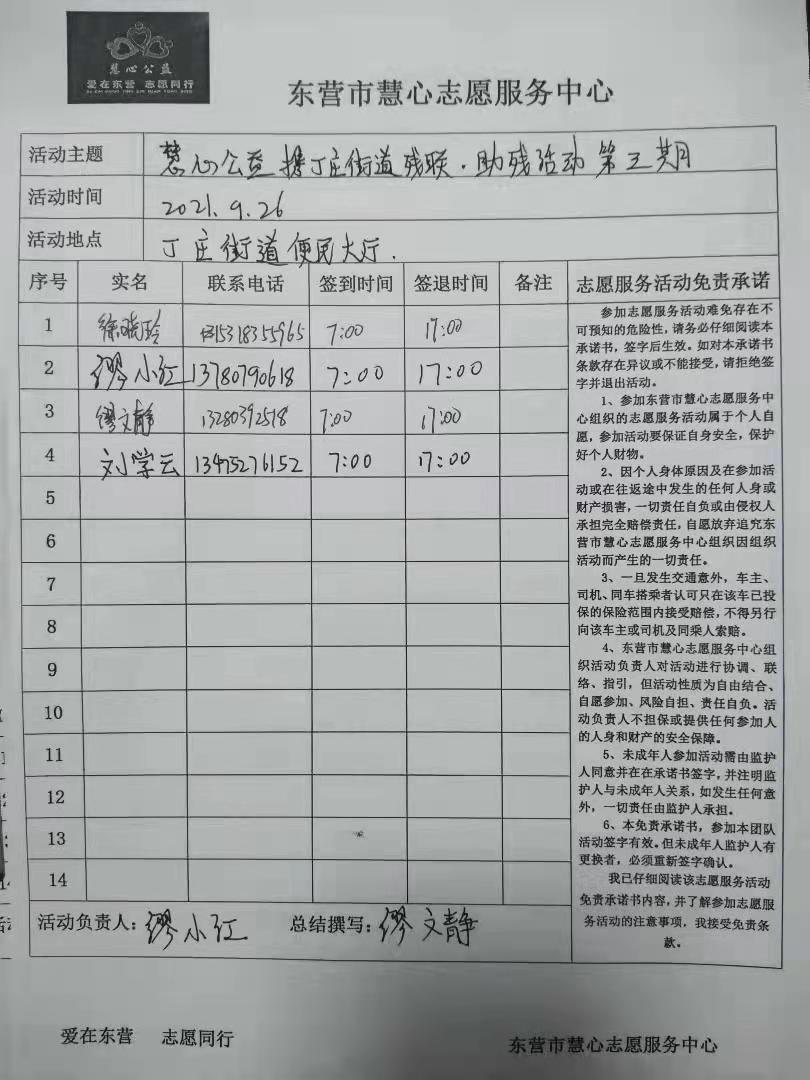 慧心公益
爱在东营 志愿同行
东营市慧心志愿服务中心
活动主题 慧心公益携丁庄街道残联.助残活动第三期
活动时间 2021.9.26
活动地点 丁庄街道便民大厅.
序号 实名 联系电话 签到时间 签退时间 备注 志愿服务活动免责承诺
1 徐晓玲 15318355965 7:00 17:00
2 缪小红 13780790618 7:00 17:00
3 缪文静 13280392518 7:00 17:00
4 刘学云 13475276152 7:00 17:00
5
6
7
8
9
10
11
12
13
14
参加志愿服务活动难免存在不
可预知的危险性，请务必仔细阅读本
承诺书，签字后生效。如对本承诺书
条款存在异议或不能接受，请拒绝签
字并退出活动。
1、参加东营市慧心志愿服务中
心组织的志愿服务活动属于个人自
愿，参加活动要保证自身安全，保护
好个人财物。
2、因个人身体原因及在参加活
动或在往返途中发生的任何人身或
财产损害，一切责任自负或由侵权人
承担完全赔偿责任，自愿放弃追究东
营市慧心志愿服务中心组织因组织
活动而产生的一切责任。
3、一旦发生交通意外，车主、
司机、同车搭乘者认可只在该车已投
保的保险范围内接受赔偿，不得另行
向该车主或司机及同乘人索赔。
4、东营市慧心志愿服务中心组
织活动负责人对活动进行协调、联
络、指引，但活动性质为自由结合、
自愿参加、风险自担、责任自负。活
动负责人不担保或提供任何参加人
的人身和财产的安全保障。
5、未成年人参加活动需由监护
人同意并在在承诺书签字，并注明监
护人与未成年人关系，如发生任何意
外，一切责任由监护人承担。
6、本免责承诺书，参加本团队
活动签字有效。但未成年人监护人有
更换者，必须重新签字确认。
我已仔细阅读该志愿服务活动
免责承诺书内容，并了解参加志愿服
务活动的注意事项，我接受免责条
款。
活动负责人：缪小红 总结撰写：缪文静
爱在东营 志愿同行 东营市慧心志愿服务中心